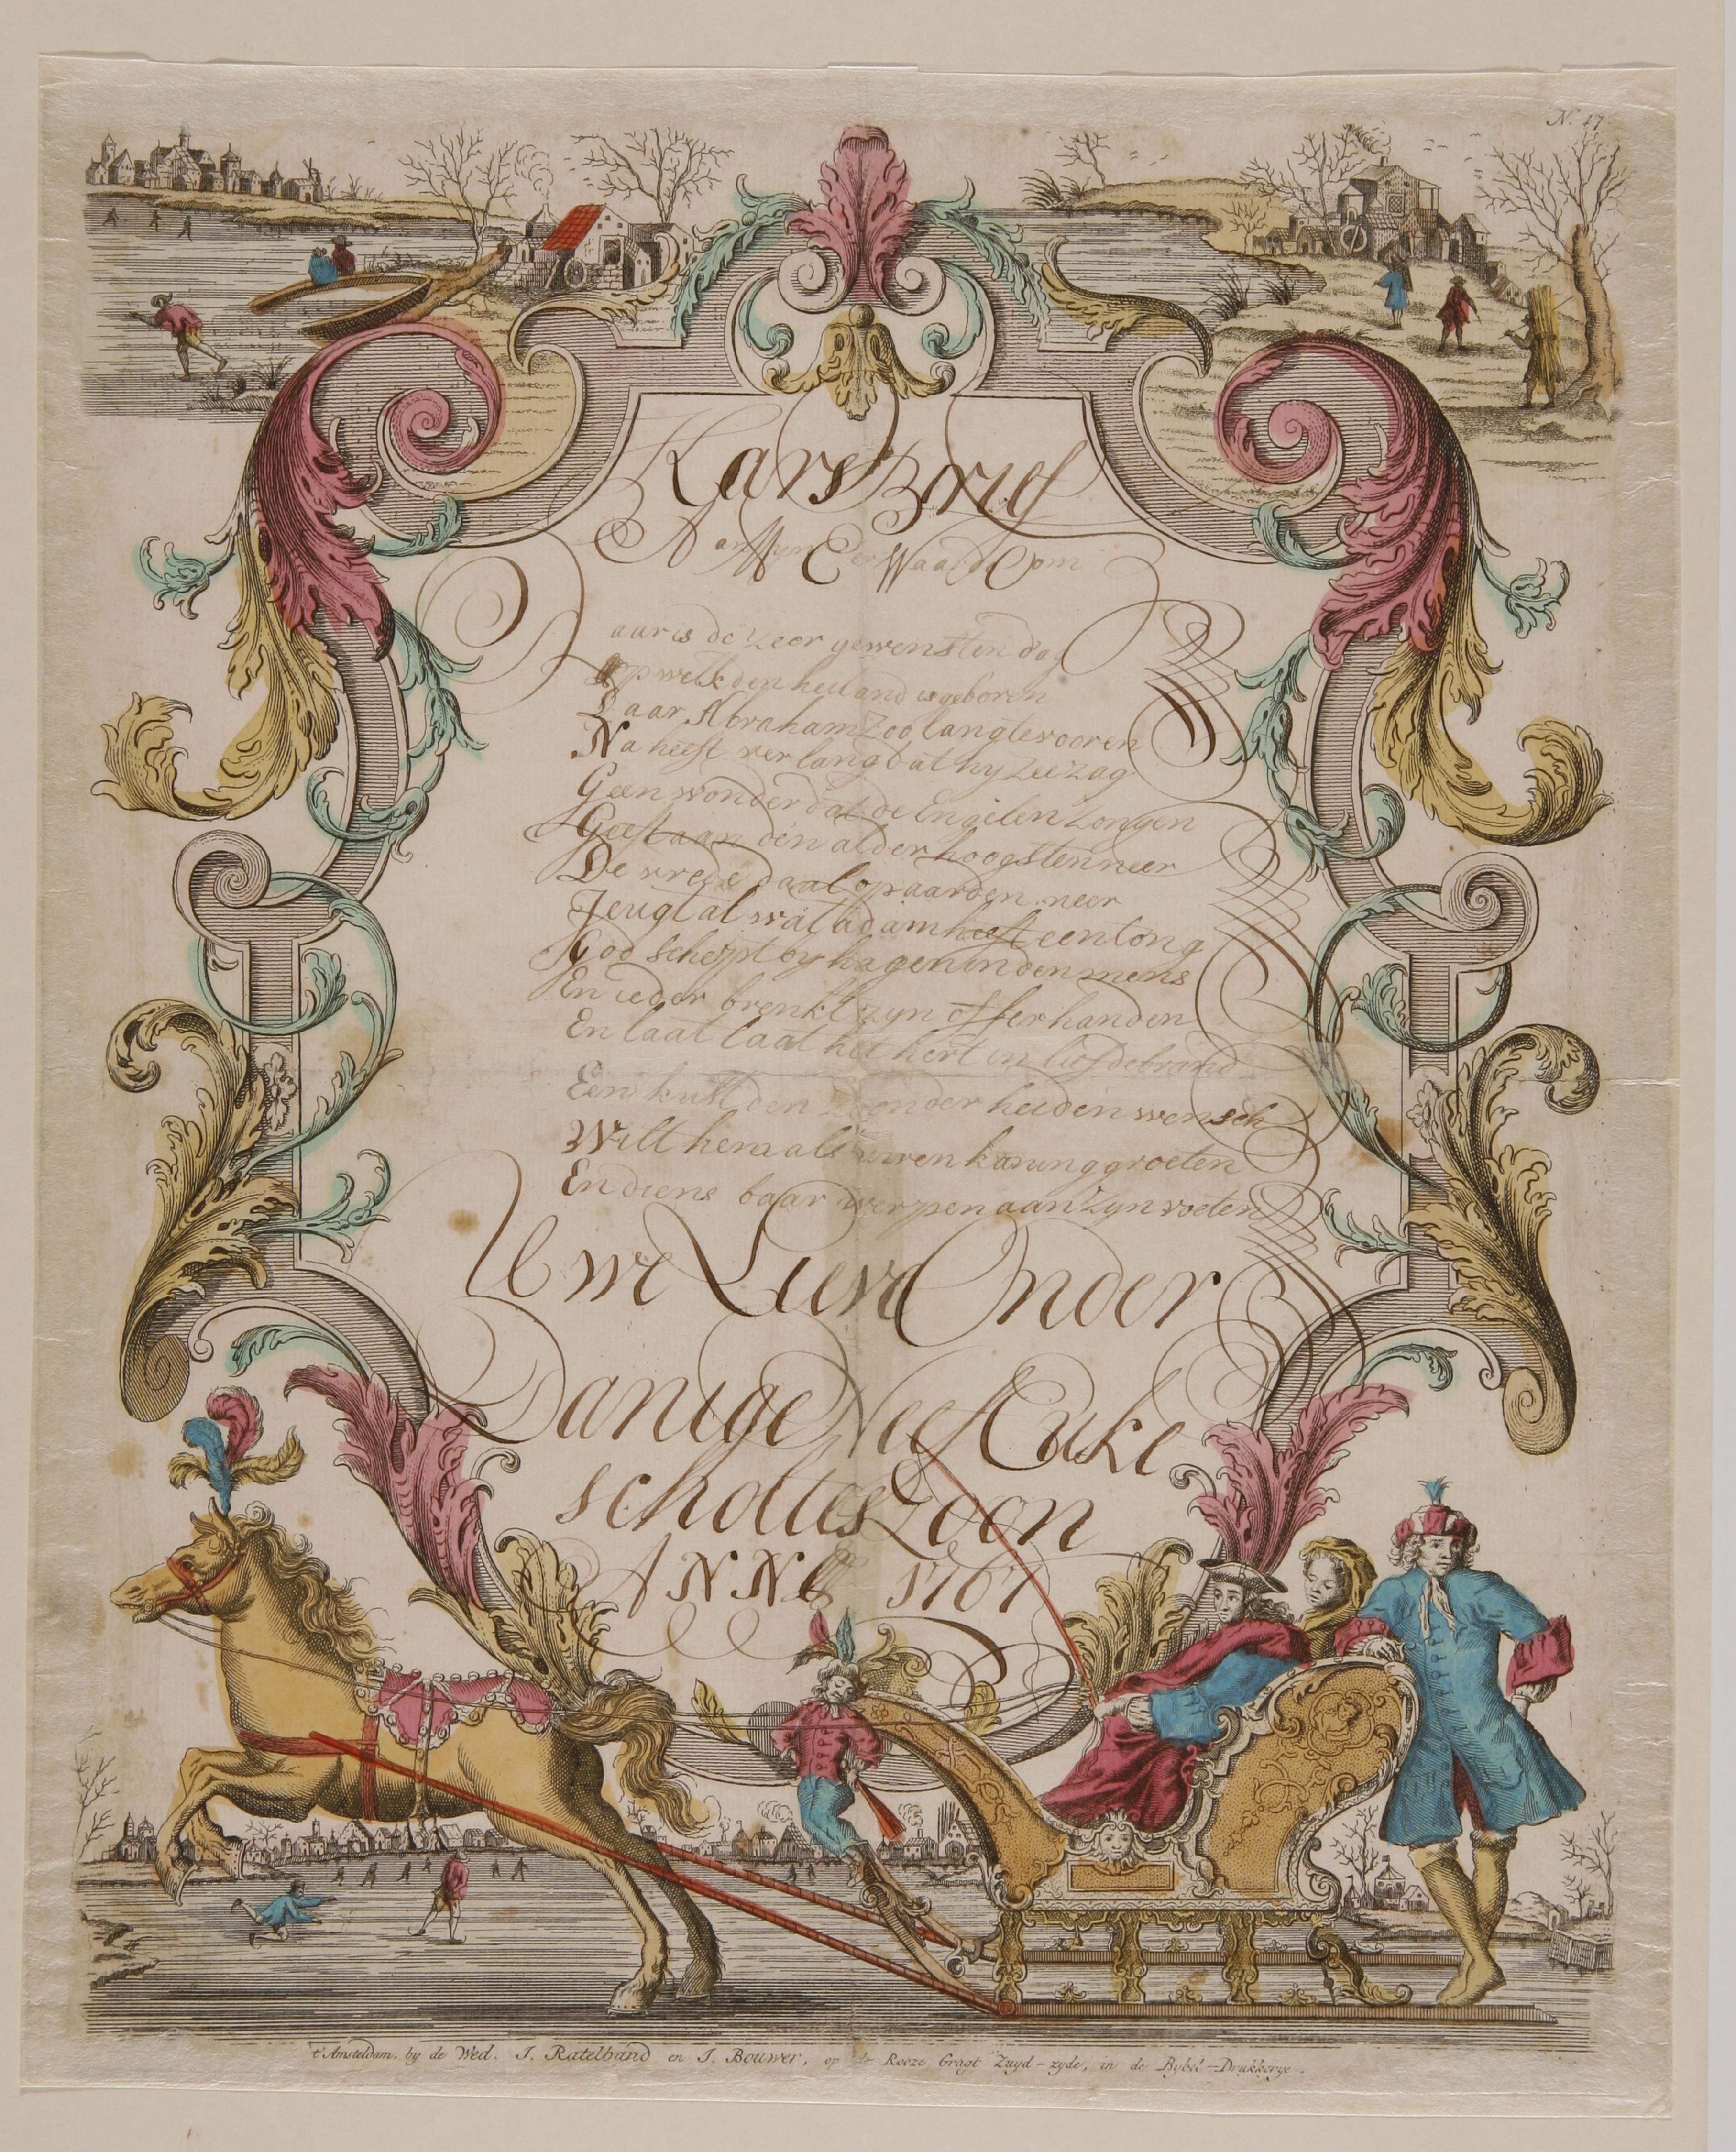 N. 47
Kars Brief
Aan Myn Eer Waarde Oom
aar is de zeer gewensten dag
op welk den heiland is geboren
Daar Abraham zoo lang te vooren
Na heeft verlangt dat hy zee zag
Geen wonder dat de Engilen zongen
Geeft aan den alder hoogsten neer
De vrede daal op aarden neer
Jeugt al wat adam heeft een tong
God schept by hagen in den mens
En ieder brenkt zyn offerhanden
En laat laat het hert in liefde brand
Een kust den zonder heiden wensch
Wilt hem als uwen kaning groeten
En diens baar werpen aan zyn voeten
Uwe Lieve Onder
Danige Neef Euke
scholtes Zoon
ANNO 1767
t'Amsteldam, by de Wed. J. Ratelband en J. Bouwer, op de Rooze Gragt Zuyd-zyde, in de Bybel-Drukkerye.